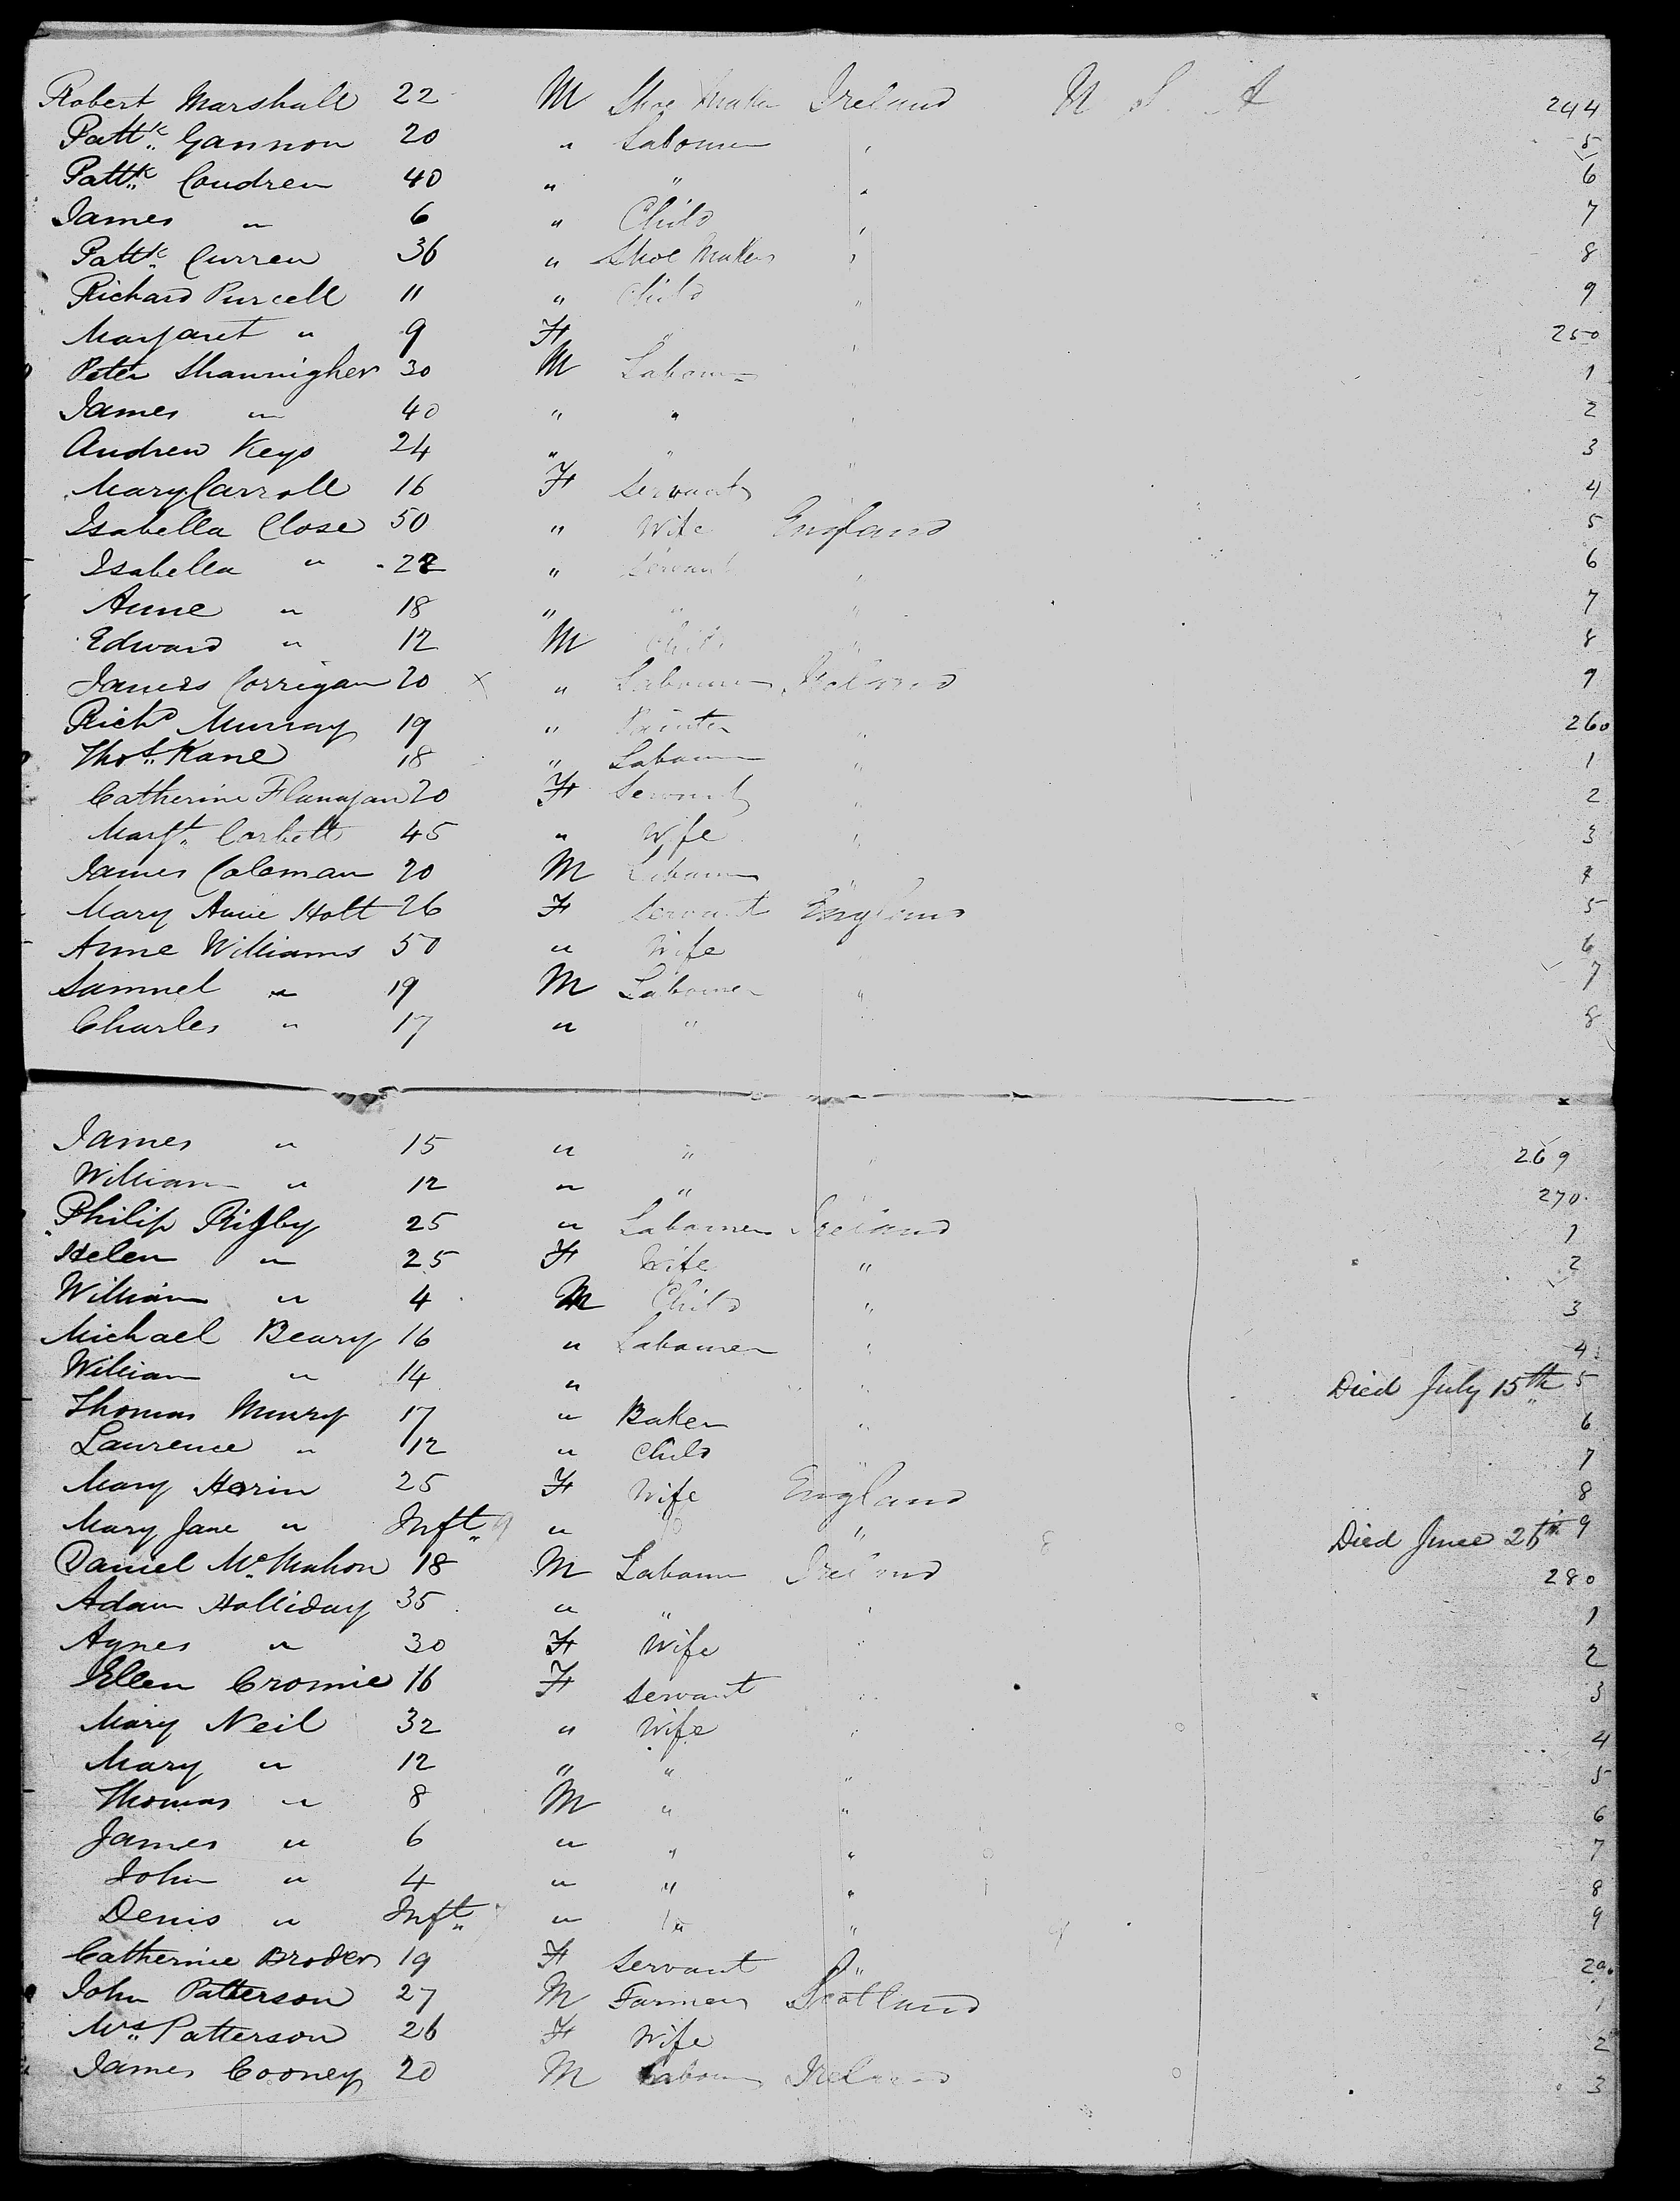 Robert Marshall 22 M Shoe Maker Ireland U S A 244
Pattk Gannon 20 " Labourer " 5
Pattk Condren 40 " " " 6
James " 6 " Child " 7
Pattk Curren 36 " Shoe Maker " 8
Richard Purcell 11 " Child " 9
Margaret " 9 F " " 250
Peter Shaunigher 30 M Labourer " 1
James " 40 " " " 2
Andrew Keys 24 " " " 3
Mary Carroll 16 F Servant 4
Isabella Close 50 " Wife England 5
Isabella " 22 " Servant " 6
Anne " 18 " " " 7
Edward " 12 M Child " 8
James Corrigan 20 x " Labourer Ireland 9
Richd Murray 19 " Painter " 260
Thos Kane 18 " Labourer " 1
Catherine Flanagan 20 F Servant " 2
Margt Corbett 45 " Wife " 3
James Coleman 20 M Labourer " 4
Mary Anne Holt 26 F Servant England 5
Anne Williams 50 " Wife 6
Samuel " 19 M Labourer " 7
Charles " 17 " " 8
James " 15 " " " 269
William " 12 " " 270
Philip Rigby 25 " Labourer Ireland 1
Helen " 25 F Wife " 2
William " 4 M Child " 3
Michael Beary 16 " Labourer " 4
William " 14 " " " Died July 15th 5
Thomas Munry 17 " Baker " 6
Laurence " 12 " Child " 7
Mary Horin 25 F Wife England 8
Mary Jane " Inft " " Died June 26th 9
Daniel McMahon 18 M Labourer Ireland 280
Adam Holliday 35 " " " 1
Agnes " 30 F Wife " 2
Ellen Cromie 16 F Servant " 3
Mary Neil 32 " Wife " 4
Mary " 12 " " " 5
Thomas " 8 M " " 6
James " 6 " " " 7
John " 4 " " " 8
Denis " Inft " " " 9
Catherine Broder 19 F Servant " 290
John Patterson 27 M Farmer Scotland 1
Mrs Patterson 26 F Wife 2
James Cooney 20 M Labourer Ireland 3